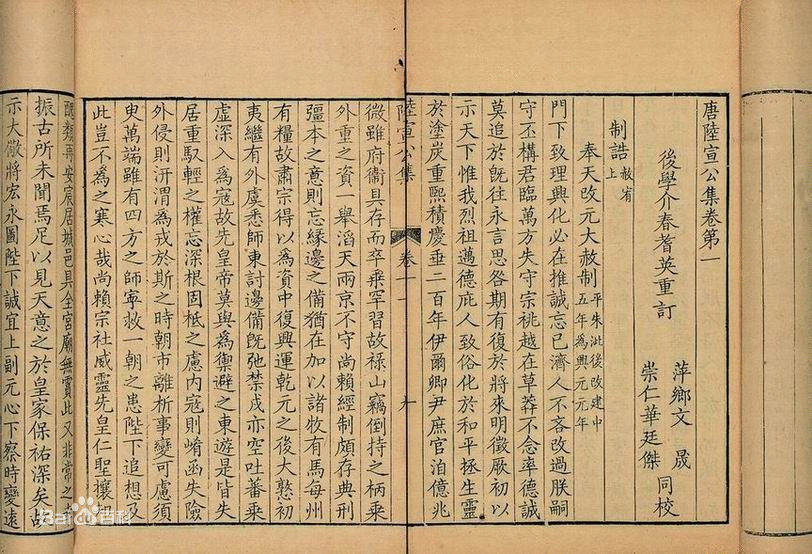 唐陸宣公集卷第一
後學介春耆英重訂
萍鄉文晟
崇仁華廷傑
同校
制誥上
赦宥
奉天改元大赦制
平朱泚後改建中
五年為興元元年
門下致理興化必在推誠忘己濟人不吝改過朕嗣
守丕構君臨萬方失守宗祧越在草莽不念率德誠
莫追於既往永言思咎期有復於將來明徵厥初以
示天下惟我烈祖邁德庇人致俗化於和平拯生靈
於塗炭重熙積慶垂二百年伊爾卿尹庶官洎億兆
陸宣公集
卷十一
微雖府衛具存而卒乘罕習故祿山竊倒持之柄乘
外重之資一舉滔天兩京不守尚賴經制頗存典刑
彊本之意則忘緣邊之備猶在加以諸牧有馬每州
有糧故肅宗得以為資中復興運乾元之後大憝初
夷繼有外虞悉師東討邊備既弛禁戎亦空吐蕃乘
虛深入為寇故先皇帝莫與為禦避之東遊是皆失
居重馭輕之權忘深根固柢之慮內寇則崤函失險
外侵則汧渭為戎於斯之時朝市離析事變可慮須
臾萬端雖有四方之師寧救一朝之患陛下追想及
此豈不為之寒心哉尚賴宗社威靈先皇仁聖攘
醜類再安宸居城邑具全宮廟無霣此又非常之
振古所未聞焉足以見天意之於皇家保祐深矣故
示大儆將宏永圖陛下誠宜上副元心下察時變遠
Baidu百科